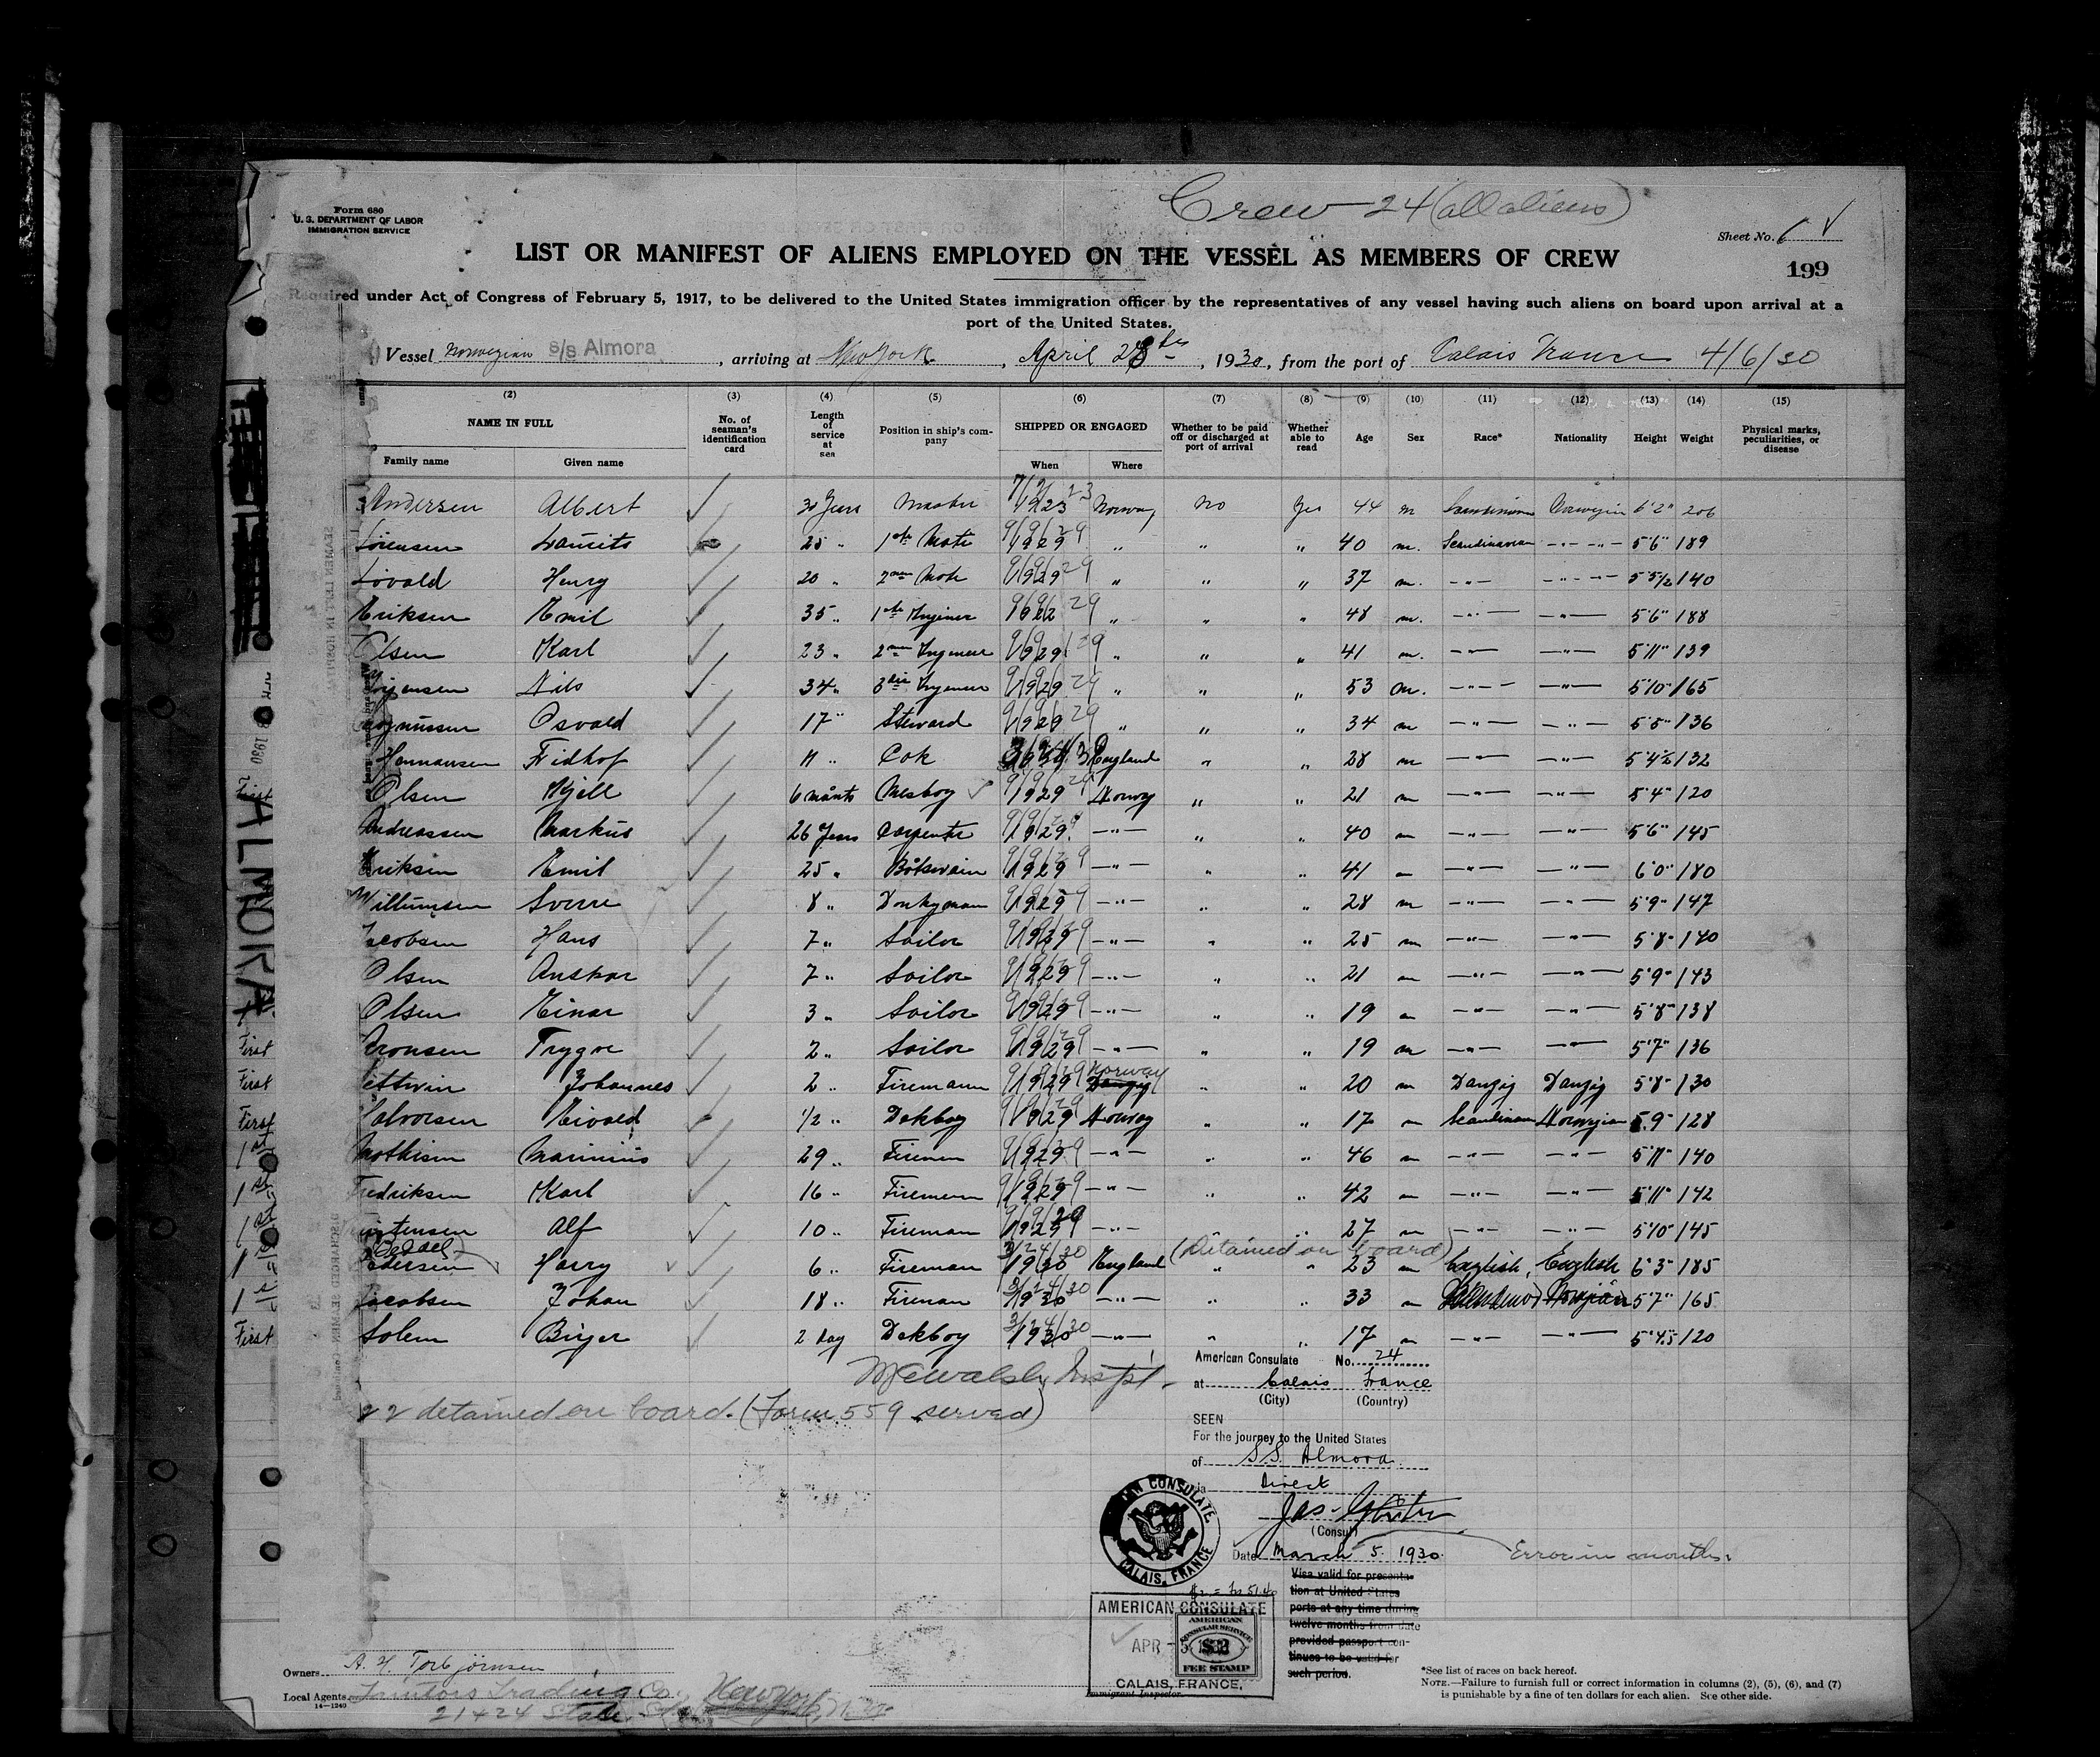 Crew 24 (all aliens)
Form 680
U. S. DEPARTMENT OF LABOR
IMMIGRATION SERVICE
Sheet No.
LIST OR MANIFEST OF ALIENS EMPLOYED ON THE VESSEL AS MEMBERS OF CREW
199
Required under Act of Congress of February 5, 1917, to be delivered to the United States immigration officer by the representatives of any vessel having such aliens on board upon arrival at a
port of the United States.
Vessel Norwegian S/S Almora, arriving at New York, April 28th, 1930, from the port of Calais France 4/6/30
(2) (3) (4) (5) (6) (7) (8) (9) (10) (11) (12) (13) (14) (15)
NAME IN FULL No. of seaman's identification card Length of service at sea Position in ship's company SHIPPED OR ENGAGED Whether to be paid off or discharged at port of arrival Whether able to read Age Sex Race* Nationality Height Weight Physical marks, peculiarities, or disease
Family name Given name When Where
Andersen Albert 30 Years Master Norway No Yes 44 m 6'2" 206
Sørensen Lauritz 25 " 1st Mate 9/9/29 " " " 40 m. Scandinavian 5'6" 189
Løvald Henry 20 " 2nd Mate 9/9/29 " " " 37 m. 5'5½ 140
Eriksen Emil 35 " 1st 9/9/29 " " " 48 m. 5'6" 188
Olsen Karl 23 " 2nd 9/9/29 " " " 41 m. 5'11" 139
Nils 34 " 9/9/29 " " " 53 m. 5'10" 165
Osvald 17 " Steward 9/9/29 " " " 34 m 5'8" 136
Hermansen Fridhof 11 " Cok England " " 28 m 5'4½ 132
Olsen Kjell 6 Mesboy 9/9/29 Norway " " 21 m 5'4" 120
Andreassen Markus 26 Years Carpenter 9/9/29 " " " 40 m 5'6" 145
Eriksen Emil 25 " Båtsvain 9/9/29 " " " 41 m 6'0" 180
Willumsen Sverre 8 " Donkyman 9/9/29 " " " 28 m 5'9" 147
Jacobsen Hans 7 " Sailor 9/9/29 " " " 25 m 5'8" 140
Olsen Anskar 7 " Sailor 9/9/29 " " " 21 m 5'9" 143
Olsen Einar 3 " Sailor 9/9/29 " " " 19 m 5'8" 138
First Aronsen Trygve 2 " Sailor 9/9/29 " " " 19 m 5'7" 136
First Johannes 2 " Firemann 9/9/29 Norway Danzig " " 20 m Danzig Danzig 5'8" 130
First Halvorsen Eivald ½ " Dekboy 9/9/29 Norway " " 17 m Norwegian 5'9" 128
1st Mathisen Marinius 29 " Firemen 9/9/29 " " " 46 m 5'11" 140
1st Fredriksen Karl 16 " Firemenn 9/9/29 " " " 42 m 5'11" 142
1st Alf 10 " Fireman 9/9/29 " " " 27 m 5'10" 145
Pedersen Harry 6 " Fireman 3/24/30 England (Detained on board) 23 m English English 6'3" 185
Jacobsen Johan 18 " Fireman 3/24/30 " " " 33 m 5'7" 165
First Solem Birger 2 day Dekboy 3/24/30 " " " 17 m 120
22 detained on board. (Form 559 served)
ALMORA
American Consulate No. 24
at Calais France
(City) (Country)
SEEN
For the journey to the United States
of S.S. Almora
Direct
(Consul)
Date March 5 1930 Error in month.
Visa valid for presenta-
tion at United States
ports at any time during
twelve months from date
provided passport con-
tinues to be valid for
such period.
AMERICAN CONSULATE
CALAIS, FRANCE
AMERICAN CONSULATE
APR - 5
CALAIS, FRANCE,
AMERICAN
CONSULAR SERVICE
$2
FEE STAMP
Immigrant Inspector.
Owners A. H. Torbjørnsen
Local Agents Trading Co. New York, N.Y.
14—1240
21+24 State St.
*See list of races on back hereof.
NOTE.—Failure to furnish full or correct information in columns (2), (5), (6), and (7)
is punishable by a fine of ten dollars for each alien. See other side.